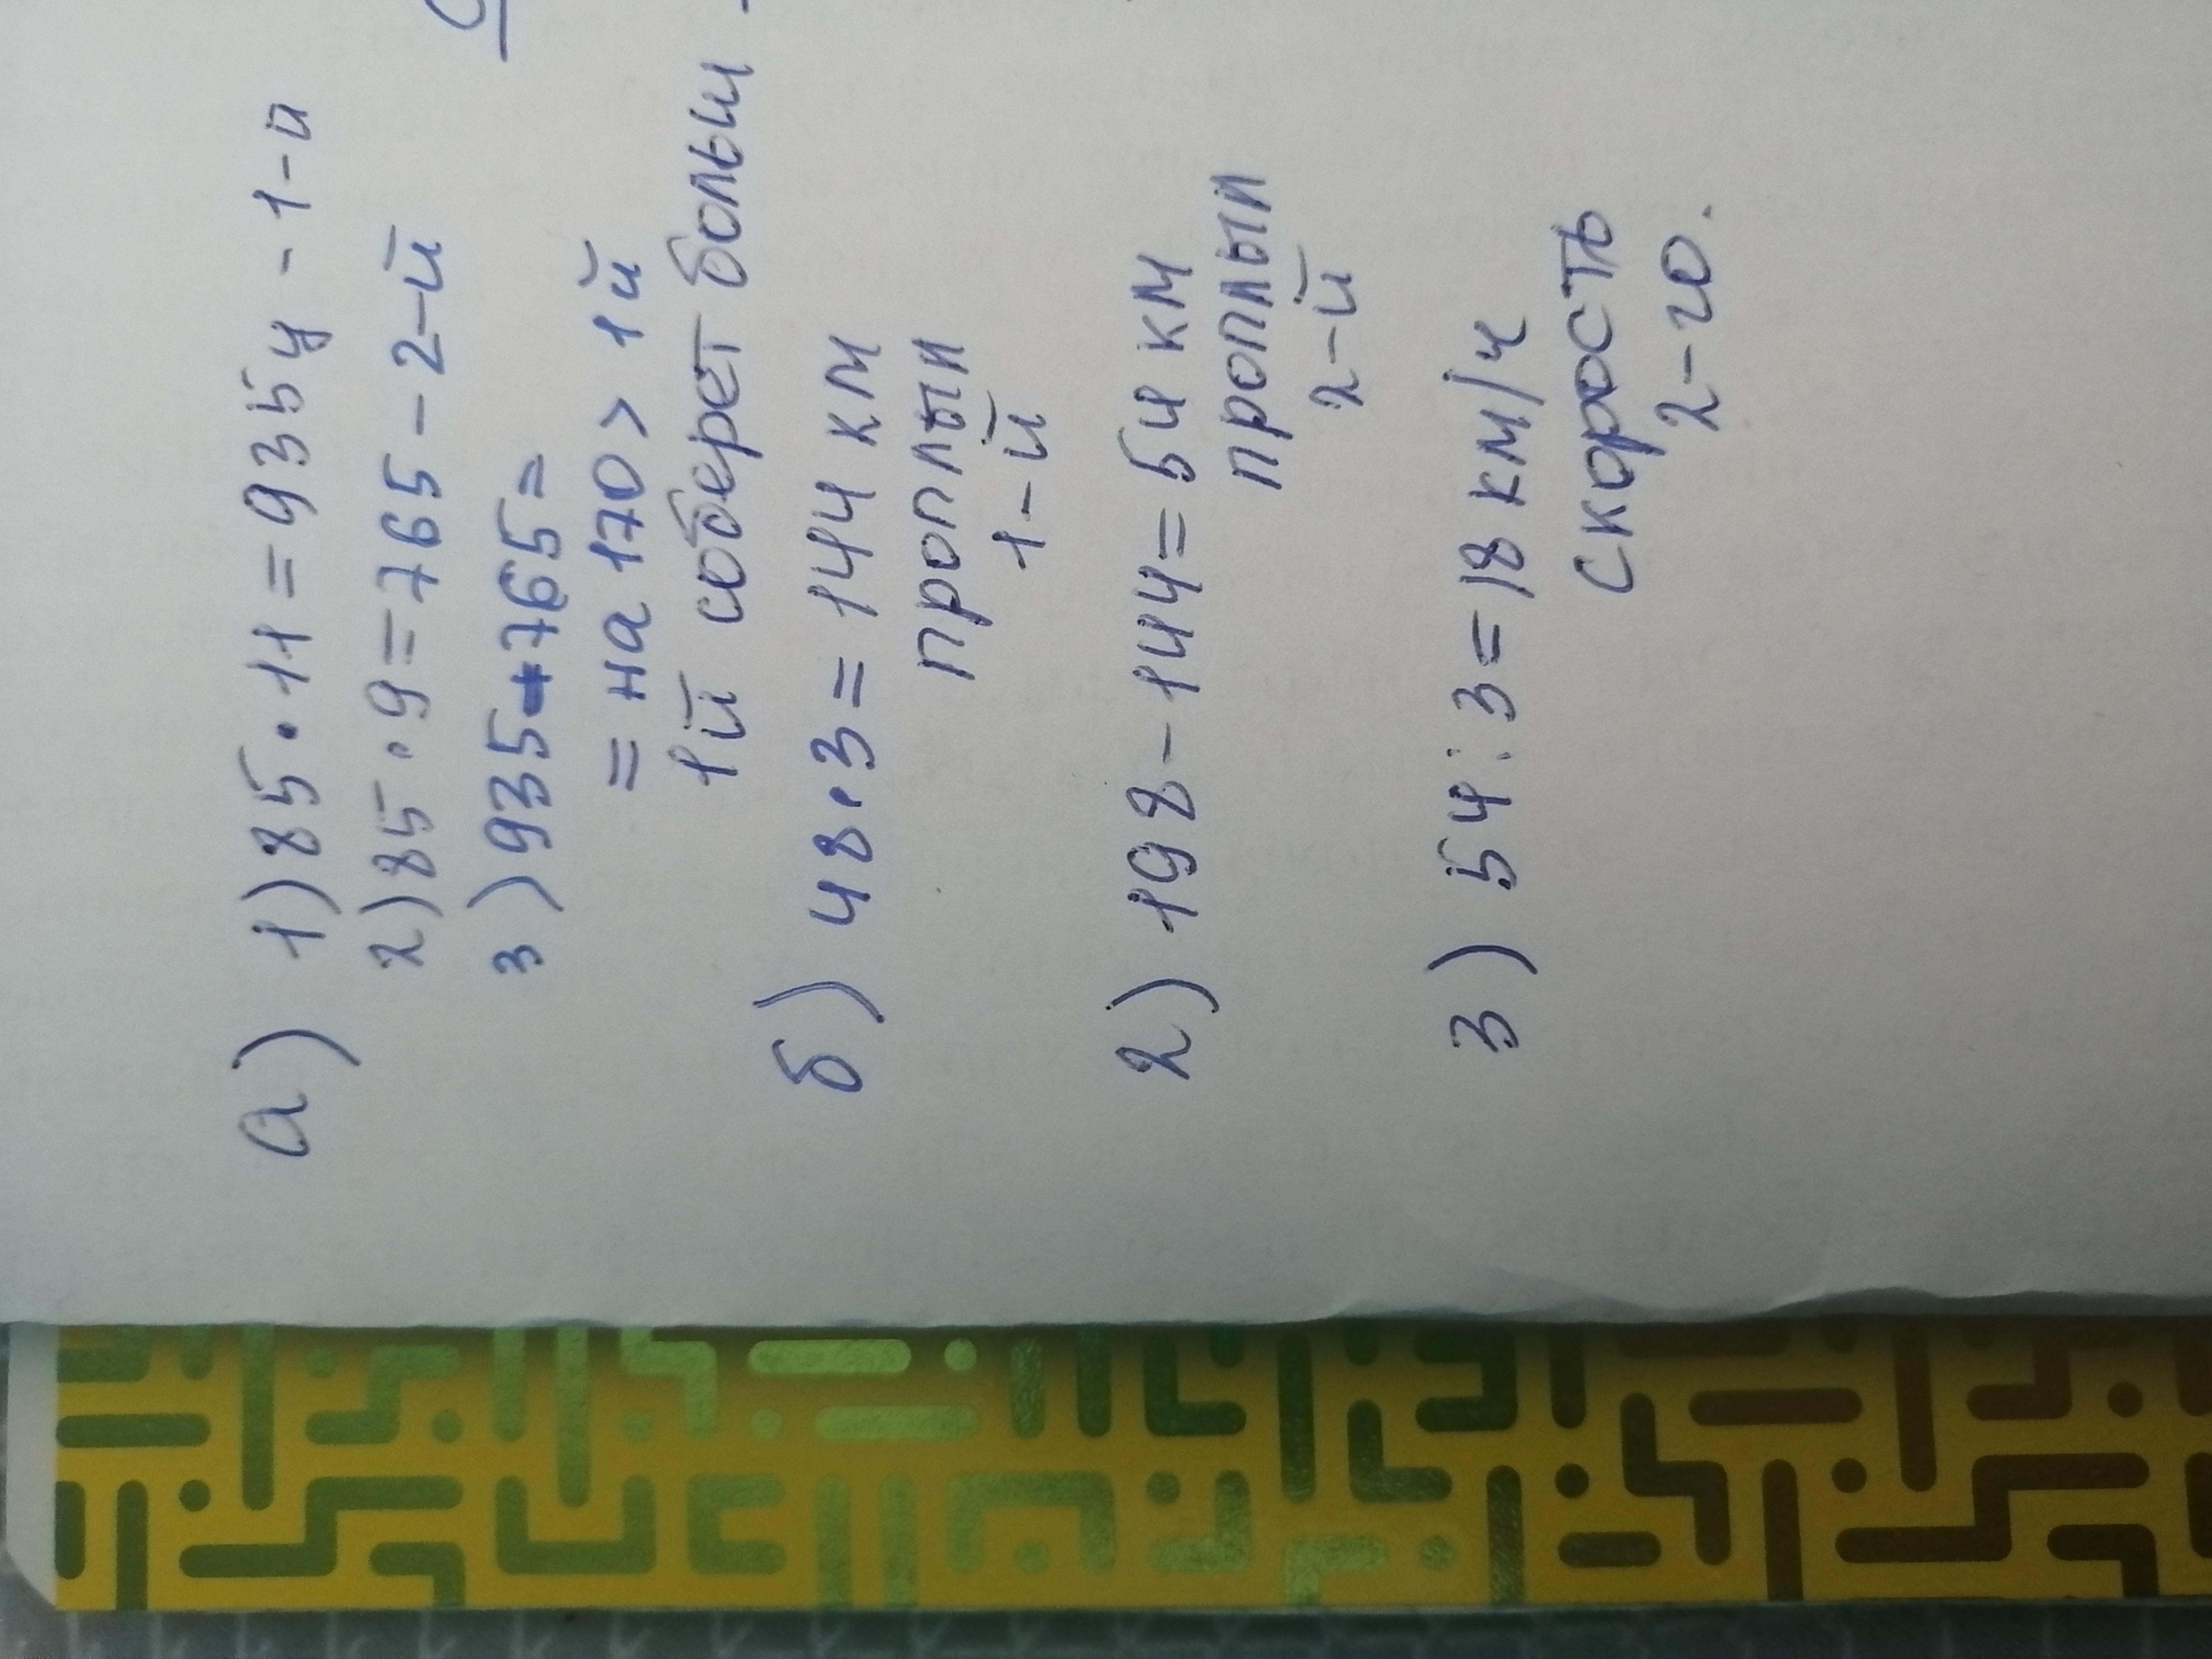 а) 1) 85 · 11 = 935 у - 1-й
2) 85 · 9 = 765 - 2-й
3) 935 - 765 =
= на 170 > 1й
1й соберет больш -
б) 48 · 3 = 144 км
проплыл
1-й
2) 198 - 144 = 54 км
проплыл
2-й
3) 54 : 3 = 18 км/ч
скорость
2-го.